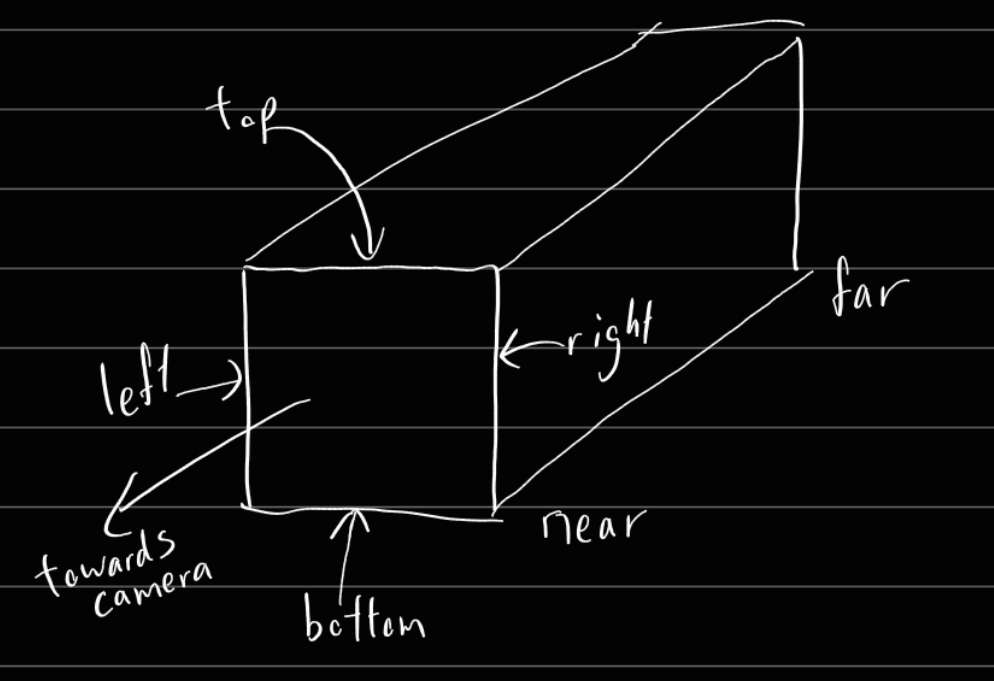 top
far
right
left
near
towards
camera
bottom